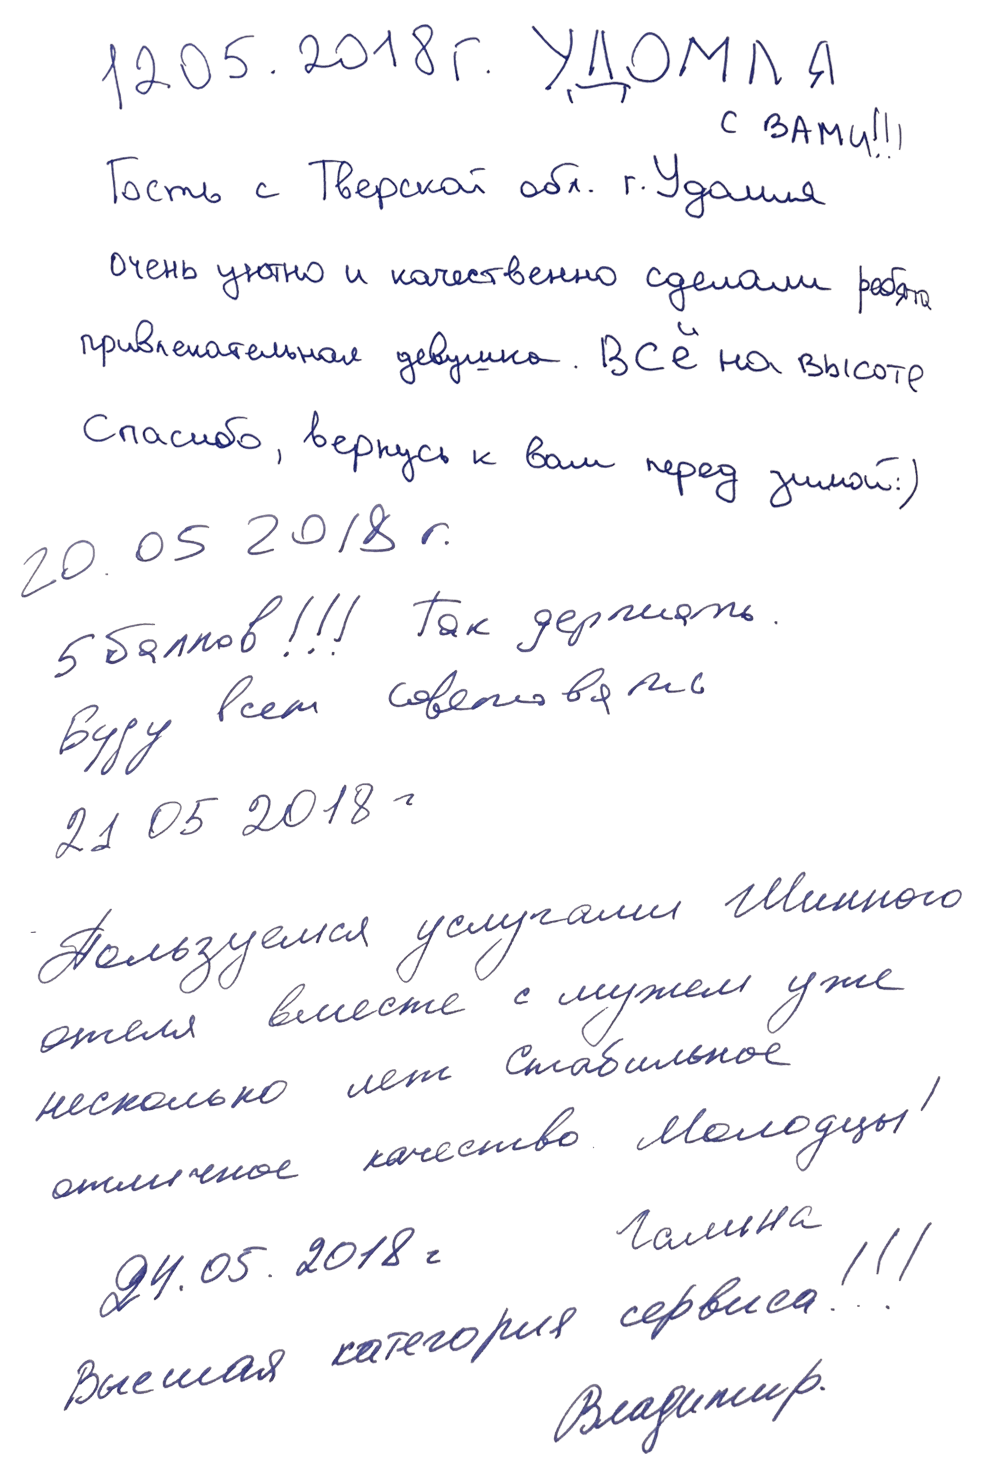 12 05. 2018 г. УДОМЛЯ
С ВАМИ!!!
Гость с Тверской обл. г. Удомля
очень уютно и качественно сделали ребята
привлекательная девушка. Всё на высоте
Спасибо, вернусь к вам перед зимой:)
20. 05 2018 г.
5 баллов!!! Так держать.
Буду всем советовать
21 05 2018 г
Пользуемся услугами Шинного
отеля вместе с мужем уже
несколько лет Стабильное
отличное качество. Молодцы!
Галина
24.05.2018 г
Высшая категория сервиса!!!
Владимир.